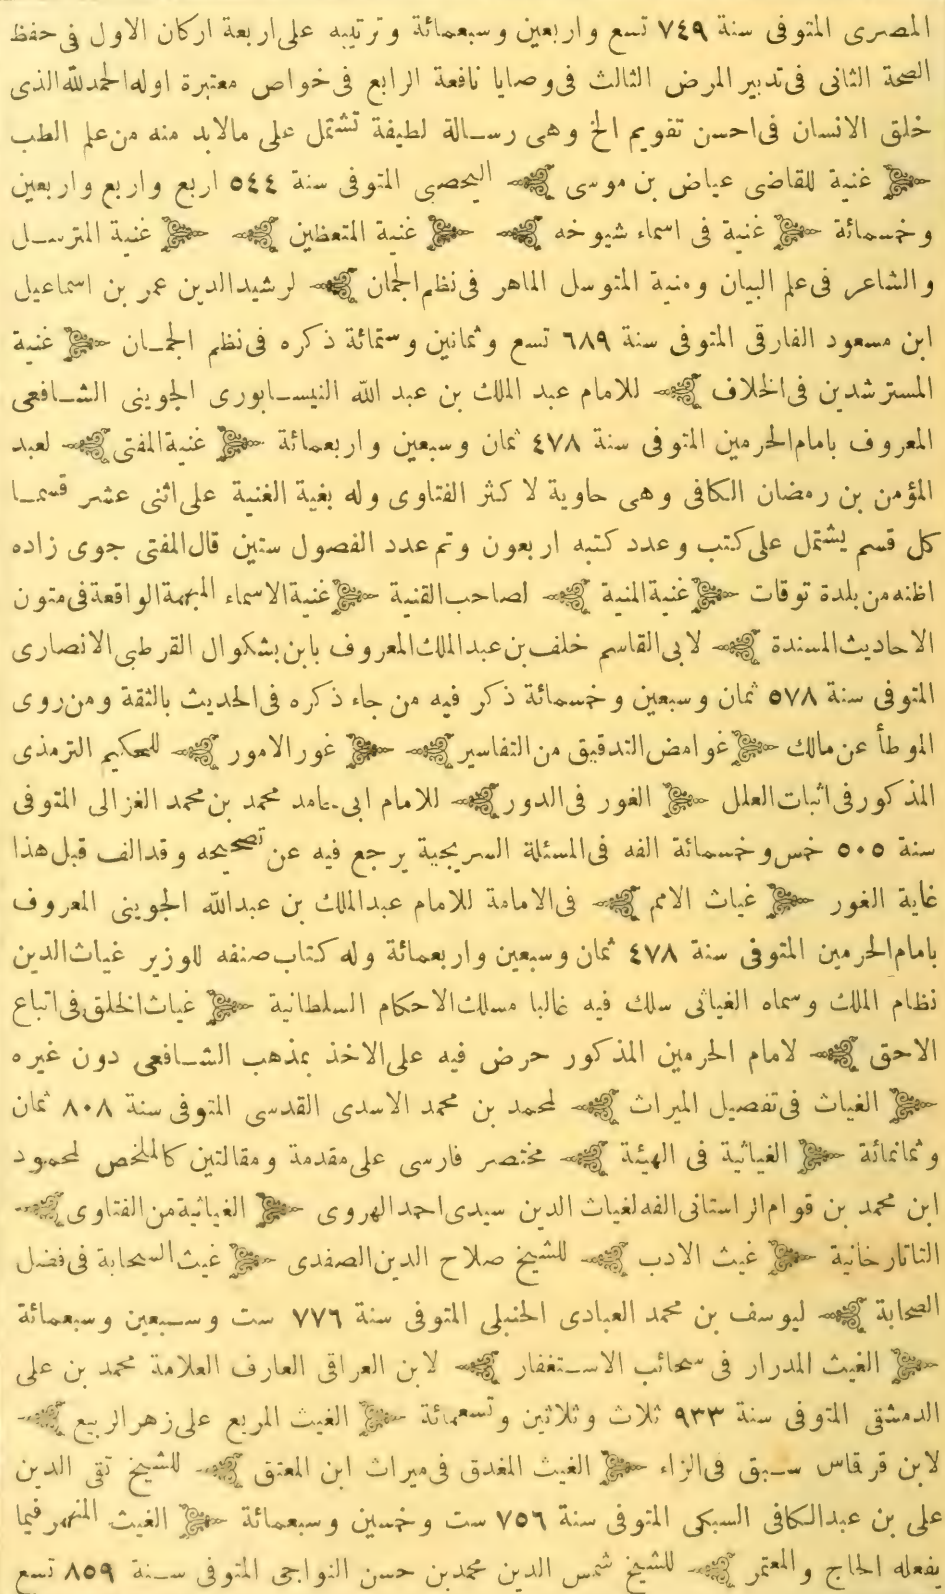 المصرى المتوفى سنة ٧٤٩ تسع واربعين وسبعمائة وترتيبه على اربعة اركان الاول فى حفظ
الصحة الثانى فى تدبير المرض الثالث فى وصايا نافعة الرابع فى خواص معتبرة اوله الحمدلله الذى
خلق الانسان فى احسن تقويم الخ وهى رسالة لطيفة تشتمل على مالابد منه من علم الطب
﴿ غنية للقاضى عياض بن موسى ﴾ اليحصبى المتوفى سنة ٥٤٤ اربع واربع واربعين
وخمسمائة ﴿ غنية فى اسماء شيوخه ﴾ ﴿ غنية المتعظين ﴾ ﴿ غنية المترسل
والشاعر فى علم البيان ومنية المتوسل الماهر فى نظم الجمان ﴾ لرشيدالدين عمر بن اسماعيل
ابن مسعود الفارقى المتوفى سنة ٦٨٩ تسع وثمانين وستمائة ذكره فى نظم الجمان ﴿ غنية
المسترشدين فى الخلاف ﴾ للامام عبد الملك بن عبد الله النيسابورى الجوينى الشافعى
المعروف بامام الحرمين المتوفى سنة ٤٧٨ ثمان وسبعين واربعمائة ﴿ غنية المفتى ﴾ لعبد
المؤمن بن رمضان الكافى وهى حاوية لاكثر الفتاوى وله بغية الغنية على اثنى عشر قسما
كل قسم يشتمل على كتب وعدد كتبه اربعون وتم عدد الفصول ستين قال المفتى جوى زاده
اظنه من بلدة توقات ﴿ غنية المنية ﴾ لصاحب القنية ﴿ غنية الاسماء المبهمة الواقعة فى متون
الاحاديث المسندة ﴾ لابى القاسم خلف بن عبد الملك المعروف بابن بشكوال القرطبى الانصارى
المتوفى سنة ٥٧٨ ثمان وسبعين وخمسمائة ذكر فيه من جاء ذكره فى الحديث بالثقة ومن روى
الموطأ عن مالك ﴿ غوامض التدقيق من التفاسير ﴾ ﴿ غور الامور ﴾ للحكيم الترمذى
المذكور فى اثبات العلل ﴿ الغور فى الدور ﴾ للامام ابى حامد محمد بن محمد الغزالى المتوفى
سنة ٥٠٥ خمس وخمسمائة الفه فى المسئلة السريجية يرجع فيه عن تصحيحه وقد الف قبل هذا
غاية الغور ﴿ غياث الامم ﴾ فى الامامة للامام عبد الملك بن عبد الله الجوينى المعروف
بامام الحرمين المتوفى سنة ٤٧٨ ثمان وسبعين واربعمائة وله كتاب صنفه للوزير غياث الدين
نظام الملك وسماه الغياثى سلك فيه غالبا مسالك الاحكام السلطانية ﴿ غياث الخلق فى اتباع
الاحق ﴾ لامام الحرمين المذكور حرض فيه على الاخذ بمذهب الشافعى دون غيره
﴿ الغياث فى تفصيل الميراث ﴾ لمحمد بن محمد الاسدى القدسى المتوفى سنة ٨٠٨ ثمان
وثمانمائة ﴿ الغياثية فى الهيئة ﴾ مختصر فارسى على مقدمة ومقالتين كالملخص لمحمود
ابن محمد بن قوام الراستانى الفه لغياث الدين سيدى احمد الهروى ﴿ الغياثية من الفتاوى ﴾
التاتارخانية ﴿ غيث الادب ﴾ للشيخ صلاح الدين الصفدى ﴿ غيث السحابة فى فضل
الصحابة ﴾ ليوسف بن محمد العبادى الحنبلى المتوفى سنة ٧٧٦ ست وسبعين وسبعمائة
﴿ الغيث المدرار فى سحائب الاستغفار ﴾ لابن العراقى العارف العلامة محمد بن على
الدمشقى المتوفى سنة ٩٣٣ ثلاث وثلاثين وتسعمائة ﴿ الغيث المربع على زهر الربيع ﴾
لابن قرقاس سبق فى الزاء ﴿ الغيث المغدق فى ميراث ابن المعتق ﴾ للشيخ تقى الدين
على بن عبد الكافى السبكى المتوفى سنة ٧٥٦ ست وخمسين وسبعمائة ﴿ الغيث المنهمر فيما
يفعله الحاج والمعتمر ﴾ للشيخ شمس الدين محمد بن حسن النواجى المتوفى سنة ٨٥٩ تسع